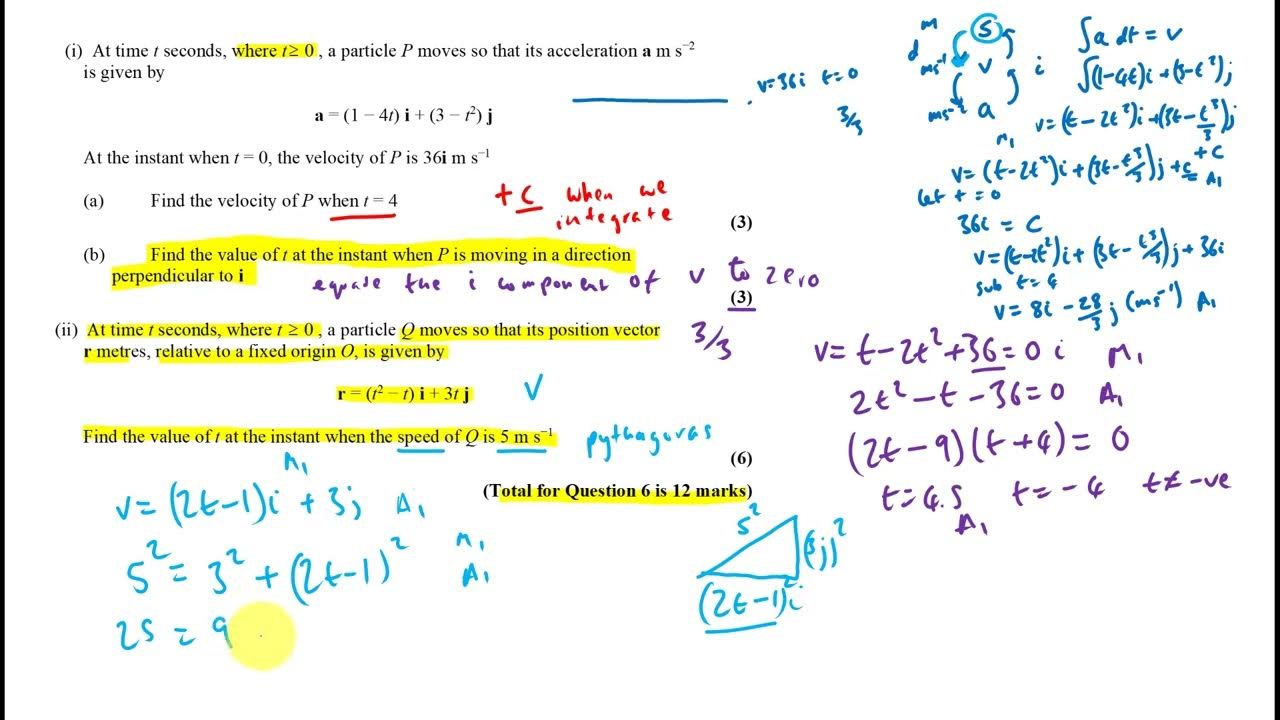 (i) At time t seconds, where t ≥ 0 , a particle P moves so that its acceleration a m s⁻²
is given by
a = (1 − 4t) i + (3 − t²) j
At the instant when t = 0, the velocity of P is 36i m s⁻¹
(a) Find the velocity of P when t = 4
+ c when we
integrate
(3)
(b) Find the value of t at the instant when P is moving in a direction
perpendicular to i
equate the i component of v to zero
(3)
3/3
(ii) At time t seconds, where t ≥ 0 , a particle Q moves so that its position vector
r metres, relative to a fixed origin O, is given by
r = (t² − t) i + 3t j
v
Find the value of t at the instant when the speed of Q is 5 m s⁻¹
pythagoras
(6)
(Total for Question 6 is 12 marks)
M1
v = (2t-1)i + 3j A1
5² = 3² + (2t-1)² M1
A1
25 = 9
5²
(3j)²
(2t-1)²i
v=36i t=0
3/3
m s
d ms⁻¹ v i
ms⁻² a
∫a dt = v
∫(1-4t)i + (3-t²)j
M1 v = (t - 2t²)i + (3t - t³/3)j
+ c
v = (t - 2t²)i + (3t - t³/3)j + c A1
let t = 0
36i = C
v = (t-2t²)i + (3t - t³/3)j + 36i
sub t = 4
v = 8i - 28/3 j (ms⁻¹) A1
v = t - 2t² + 36 = 0 i M1
2t² - t - 36 = 0 A1
(2t - 9)(t + 4) = 0
t = 4.5 t = -4 t ≠ -ve
A1